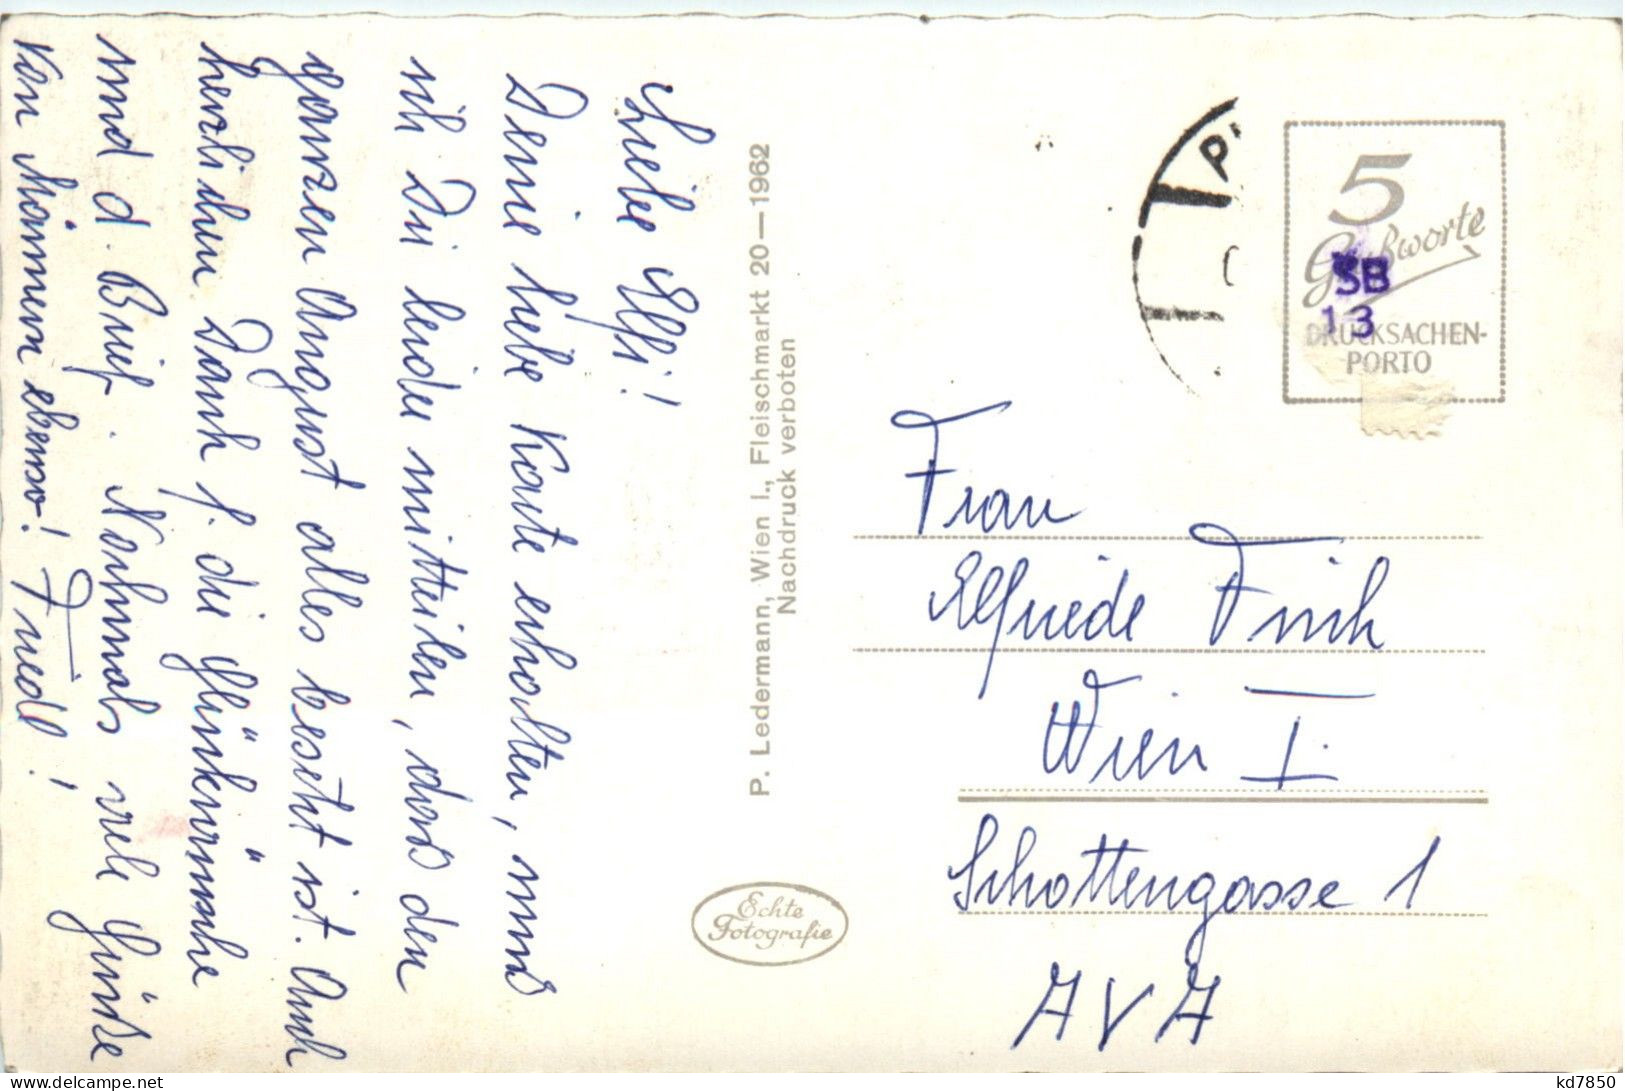 Liebe Elfi!
Deine liebe Karte erhalten, muss
ich Dir leider mitteilen, dass den
ganzen August alles besetzt ist. Auch
herzlichen Dank f. die Glückwünsche
und d. Brief. Nochmals viele Grüße
von Mämmen ebenso! Friedl!
P. Ledermann, Wien I., Fleischmarkt 20—1962
Nachdruck verboten
Echte
Fotografie
5
Grußworte
DRUCKSACHEN-
PORTO
SB
13
Frau
Elfriede Frich
Wien I.
Schottengasse 1
AVA
kd7850